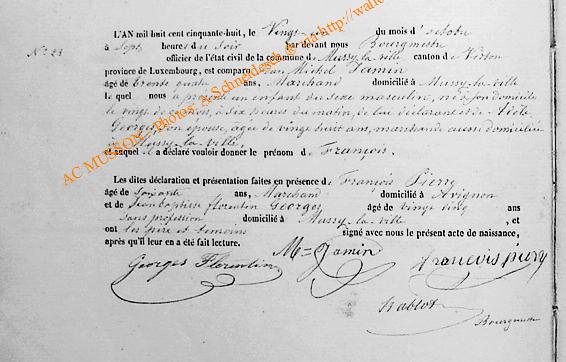 L'AN mil huit cent cinquante-huit, le Vingt du mois d'octobre
N° 23 à sept heures du soir par devant nous Bourgmestre
officier de l'état civil de la commune de Mussy la ville canton de Virton
province de Luxembourg, est comparu Jean Michel Jamin
âgé de trente quatre ans, Marchand domicilié à Mussy-la-ville
lequel nous a présenté un enfant du sexe masculin, né à son domicile
le vingt de ce mois, à six heures du matin, de lui déclarant et de Adèle
Georges, son épouse, âgée de vingt huit ans, marchande aussi domiciliée
à Mussy-la-ville,
et auquel il a déclaré vouloir donner le prénom de François.
Les dites déclaration et présentation faites en présence de François Pierry
âgé de soixante ans, Marchand domicilié à Avignon
et de Jean baptiste florentin Georges âgé de vingt cinq ans
sans profession domicilié à Mussy-la-ville, et
ont les père et témoins signé avec nous le présent acte de naissance,
après qu'il leur en a été fait lecture.
Georges Florentin M Jamin francois piery
Bourgmestre
AC MUSSON Photos: A Schneidesch @ via http://